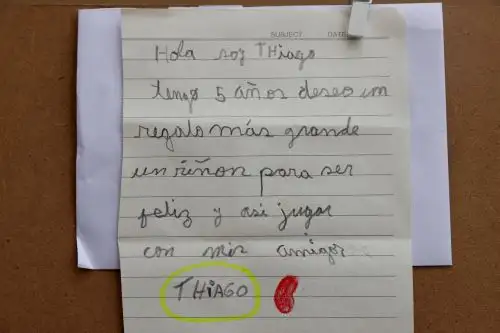 SUBJECT DATE
Hola soy THiago
tengo 5 años deseo un
regalo más grande
un riñon para ser
feliz y asi jugar
con mis amigos
THiAGO